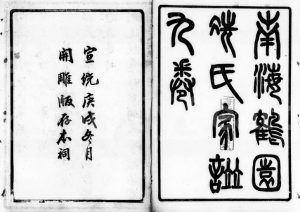 南海鶴園
冼氏家譜
九卷
宣統庚戌冬月
開雕版存本祠